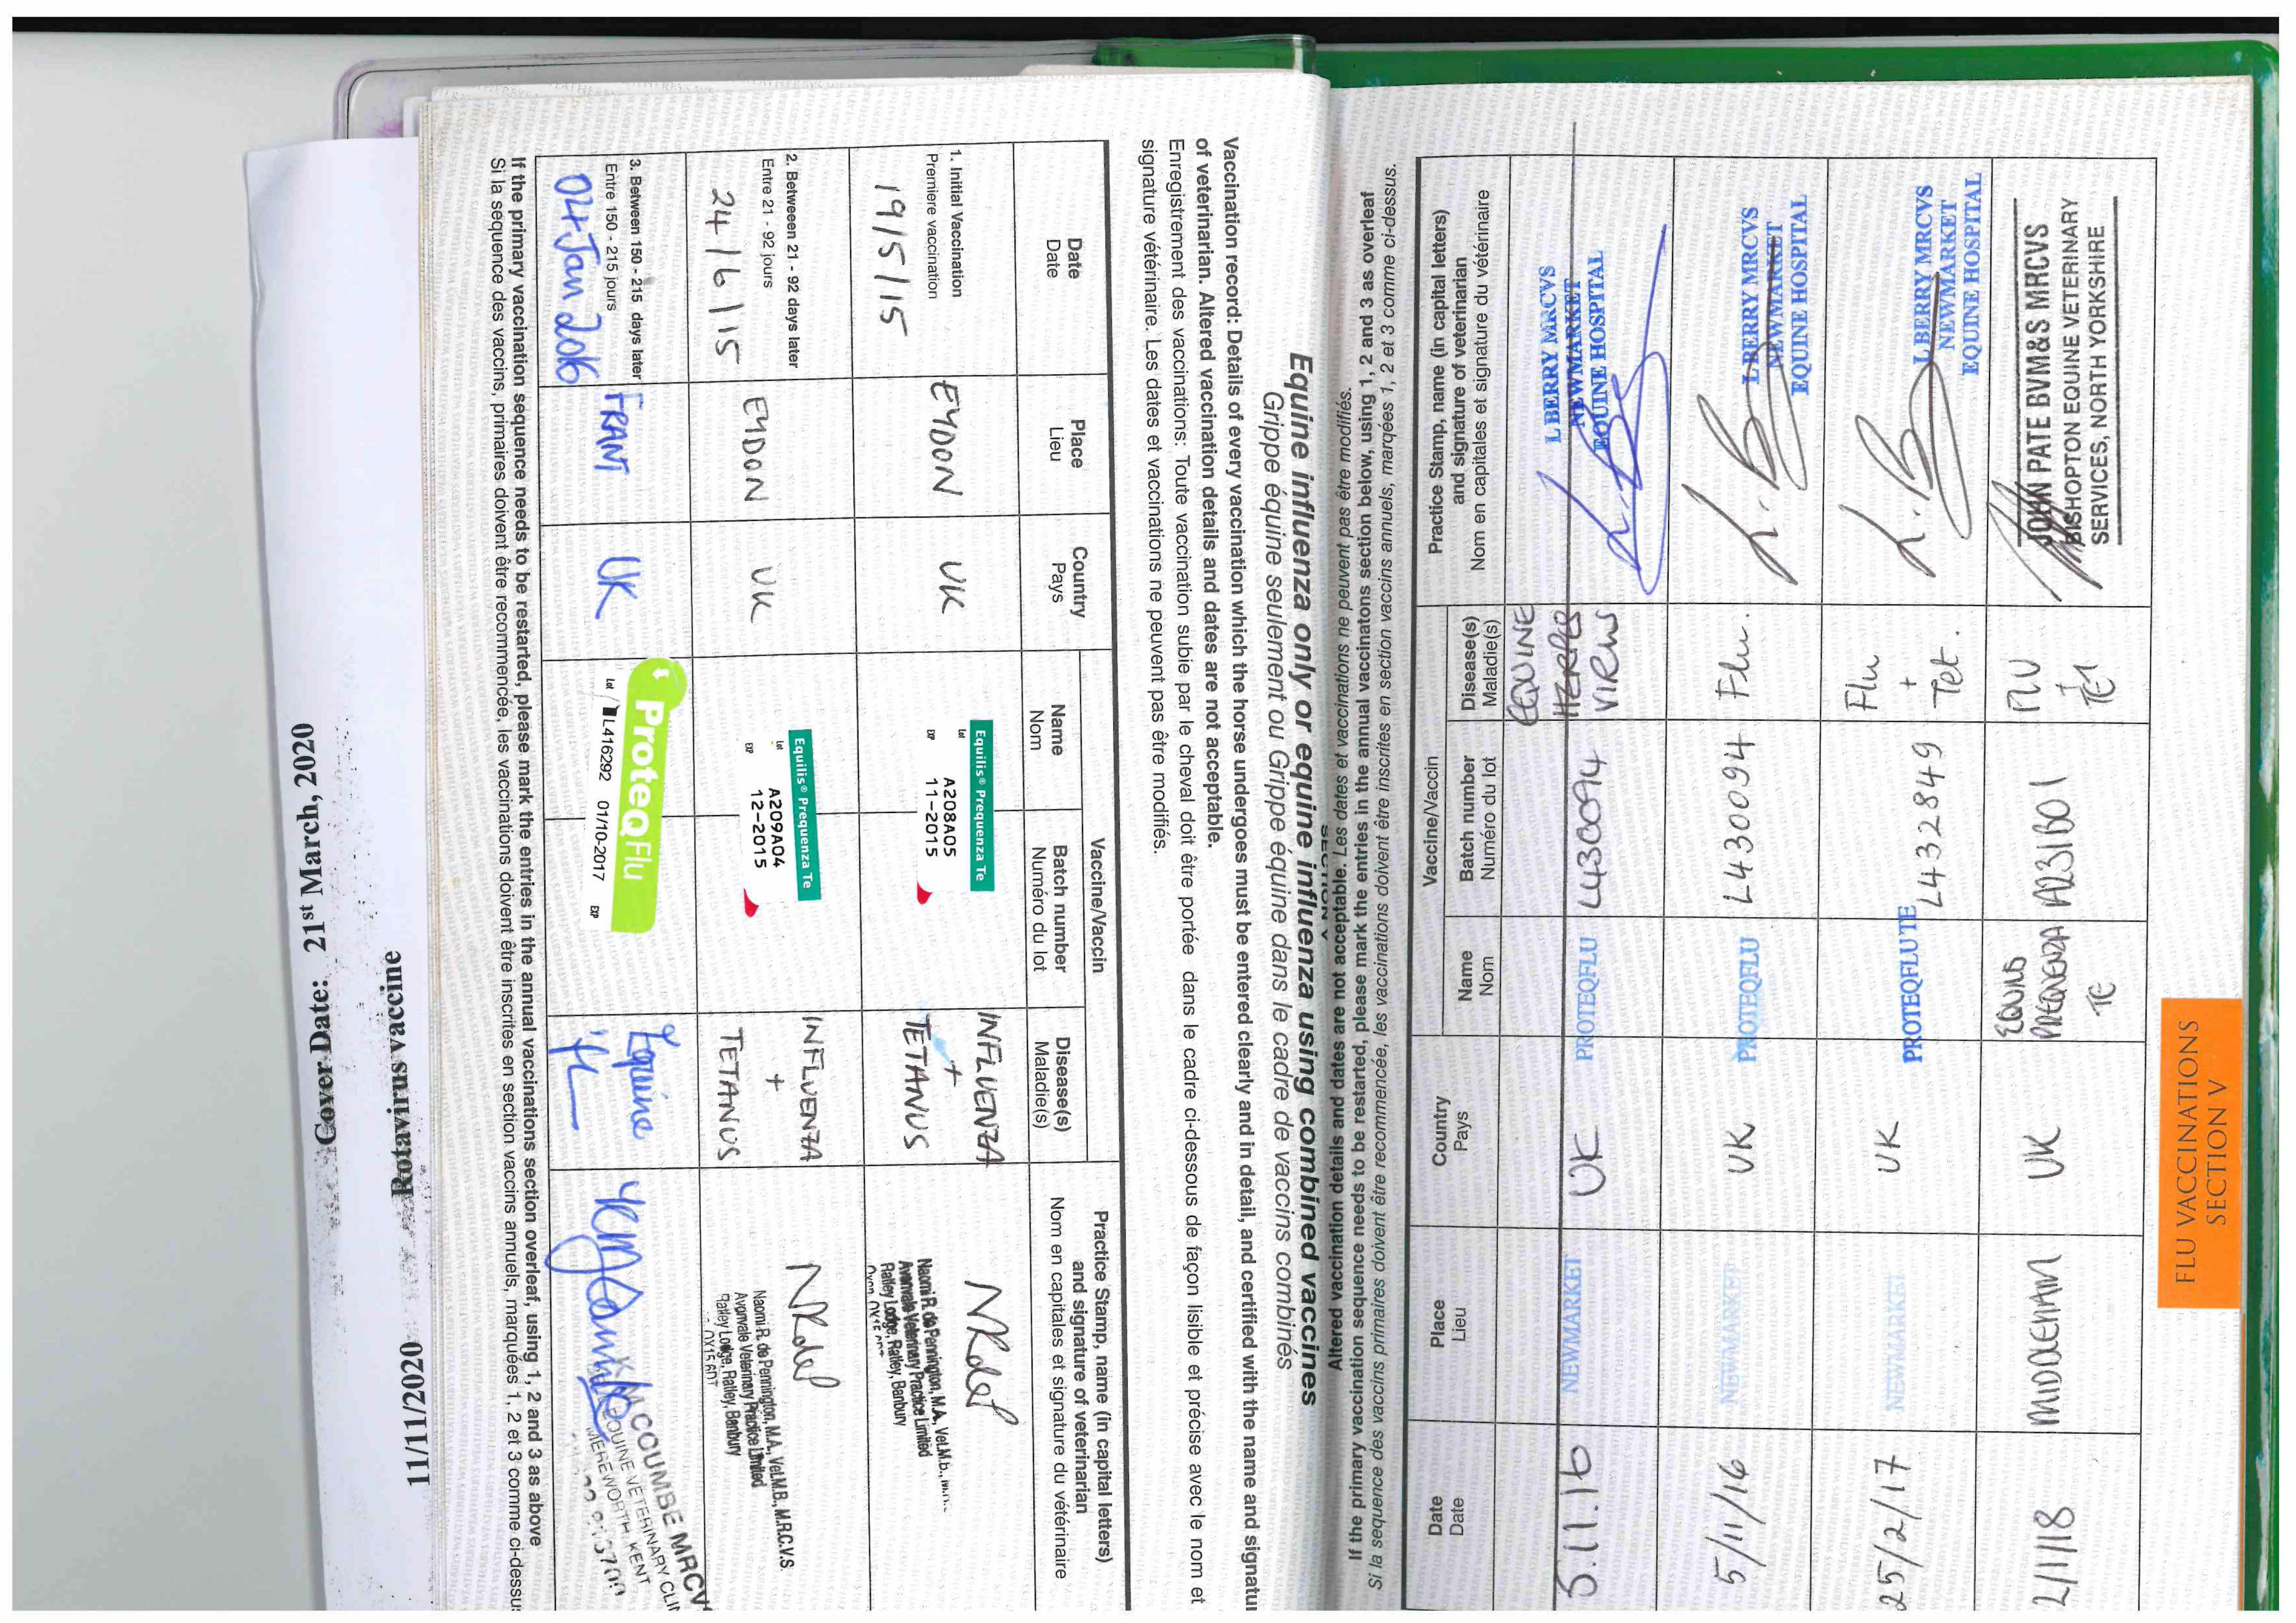 Equine influenza only or equine influenza using combined vaccines
Grippe équine seulement ou Grippe équine dans le cadre de vaccins combinés
Vaccination record: Details of every vaccination which the horse undergoes must be entered clearly and in detail, and certified with the name and signatur
of veterinarian. Altered vaccination details and dates are not acceptable.
Enregistrement des vaccinations: Toute vaccination subie par le cheval doit être portée dans le cadre ci-dessous de façon lisible et précise avec le nom et
signature vétérinaire. Les dates et vaccinations ne peuvent pas être modifiés.
Date
Date
Place
Lieu
Country
Pays
Vaccine/Vaccin
Name
Nom
Batch number
Numéro du lot
Disease(s)
Maladie(s)
Practice Stamp, name (in capital letters)
and signature of veterinarian
Nom en capitales et signature du vétérinaire
1. Initial Vaccination
Premiere vaccination
19/5/15
EYDON
UK
Equilis® Prequenza Te
Lot A208A05
EXP 11-2015
INFLUENZA
+
TETANUS
NRdeP
Naomi R. de Pennington, M.A., Vet.M.b.,
Avonvale Veterinary Practice Limited
Ratley Lodge, Ratley, Banbury
2. Betweeen 21 - 92 days later
Entre 21 - 92 jours
24/6/15
EYDON
UK
Equilis® Prequenza Te
Lot A209A04
EXP 12-2015
INFLUENZA
+
TETANUS
NRdeP
Naomi R. de Pennington, M.A., Vet.M.B., M.R.C.V.S.
Avonvale Veterinary Practice Limited
Ratley Lodge, Ratley, Banbury
OX15 6DT
3. Between 150 - 215 days later
Entre 150 - 215 jours
04 Jan 2016
FRANT
UK
ProteqFlu
Lot L416292 01/10-2017 EXP
Equine
'flu
COUMBE MRCVS
EQUINE VETERINARY CLIN
MEREWORTH KENT
If the primary vaccination sequence needs to be restarted, please mark the entries in the annual vaccinations section overleaf, using 1, 2 and 3 as above
Si la sequence des vaccins, primaires doivent être recommencée, les vaccinations doivent être inscrites en section vaccins annuels, marquées 1, 2 et 3 comme ci-dessus
Cover Date: 21st March, 2020
Rotavirus vaccine 11/11/2020
SECTION V
Altered vaccination details and dates are not acceptable. Les dates et vaccinations ne peuvent pas être modifiés.
If the primary vaccination sequence needs to be restarted, please mark the entries in the annual vaccinatons section below, using 1, 2 and 3 as overleaf
Si la sequence des vaccins primaires doivent être recommencée, les vaccinations doivent être inscrites en section vaccins annuels, marqées 1, 2 et 3 comme ci-dessus.
Date
Date
Place
Lieu
Country
Pays
Vaccine/Vaccin
Name
Nom
Batch number
Numéro du lot
Disease(s)
Maladie(s)
Practice Stamp, name (in capital letters)
and signature of veterinarian
Nom en capitales et signature du vétérinaire
5.11.16
NEWMARKET
UK
PROTEQFLU
L430094
EQUINE
HERPES
VIRUS
L BERRY MRCVS
NEWMARKET
EQUINE HOSPITAL
5/11/16
NEWMARKET
UK
PROTEQFLU
L430094
Flu.
L BERRY MRCVS
NEWMARKET
EQUINE HOSPITAL
25/2/17
NEWMARKET
UK
PROTEQFLUTE
L432849
Flu
+
Tet.
L BERRY MRCVS
NEWMARKET
EQUINE HOSPITAL
2/1/18
MIDDLEHAM
UK
EQUILIS
PREQUENZA
TE
A231B01
FLU
+
TET
JOHN PATE BVM&S MRCVS
BISHOPTON EQUINE VETERINARY
SERVICES, NORTH YORKSHIRE
FLU VACCINATIONS
SECTION V